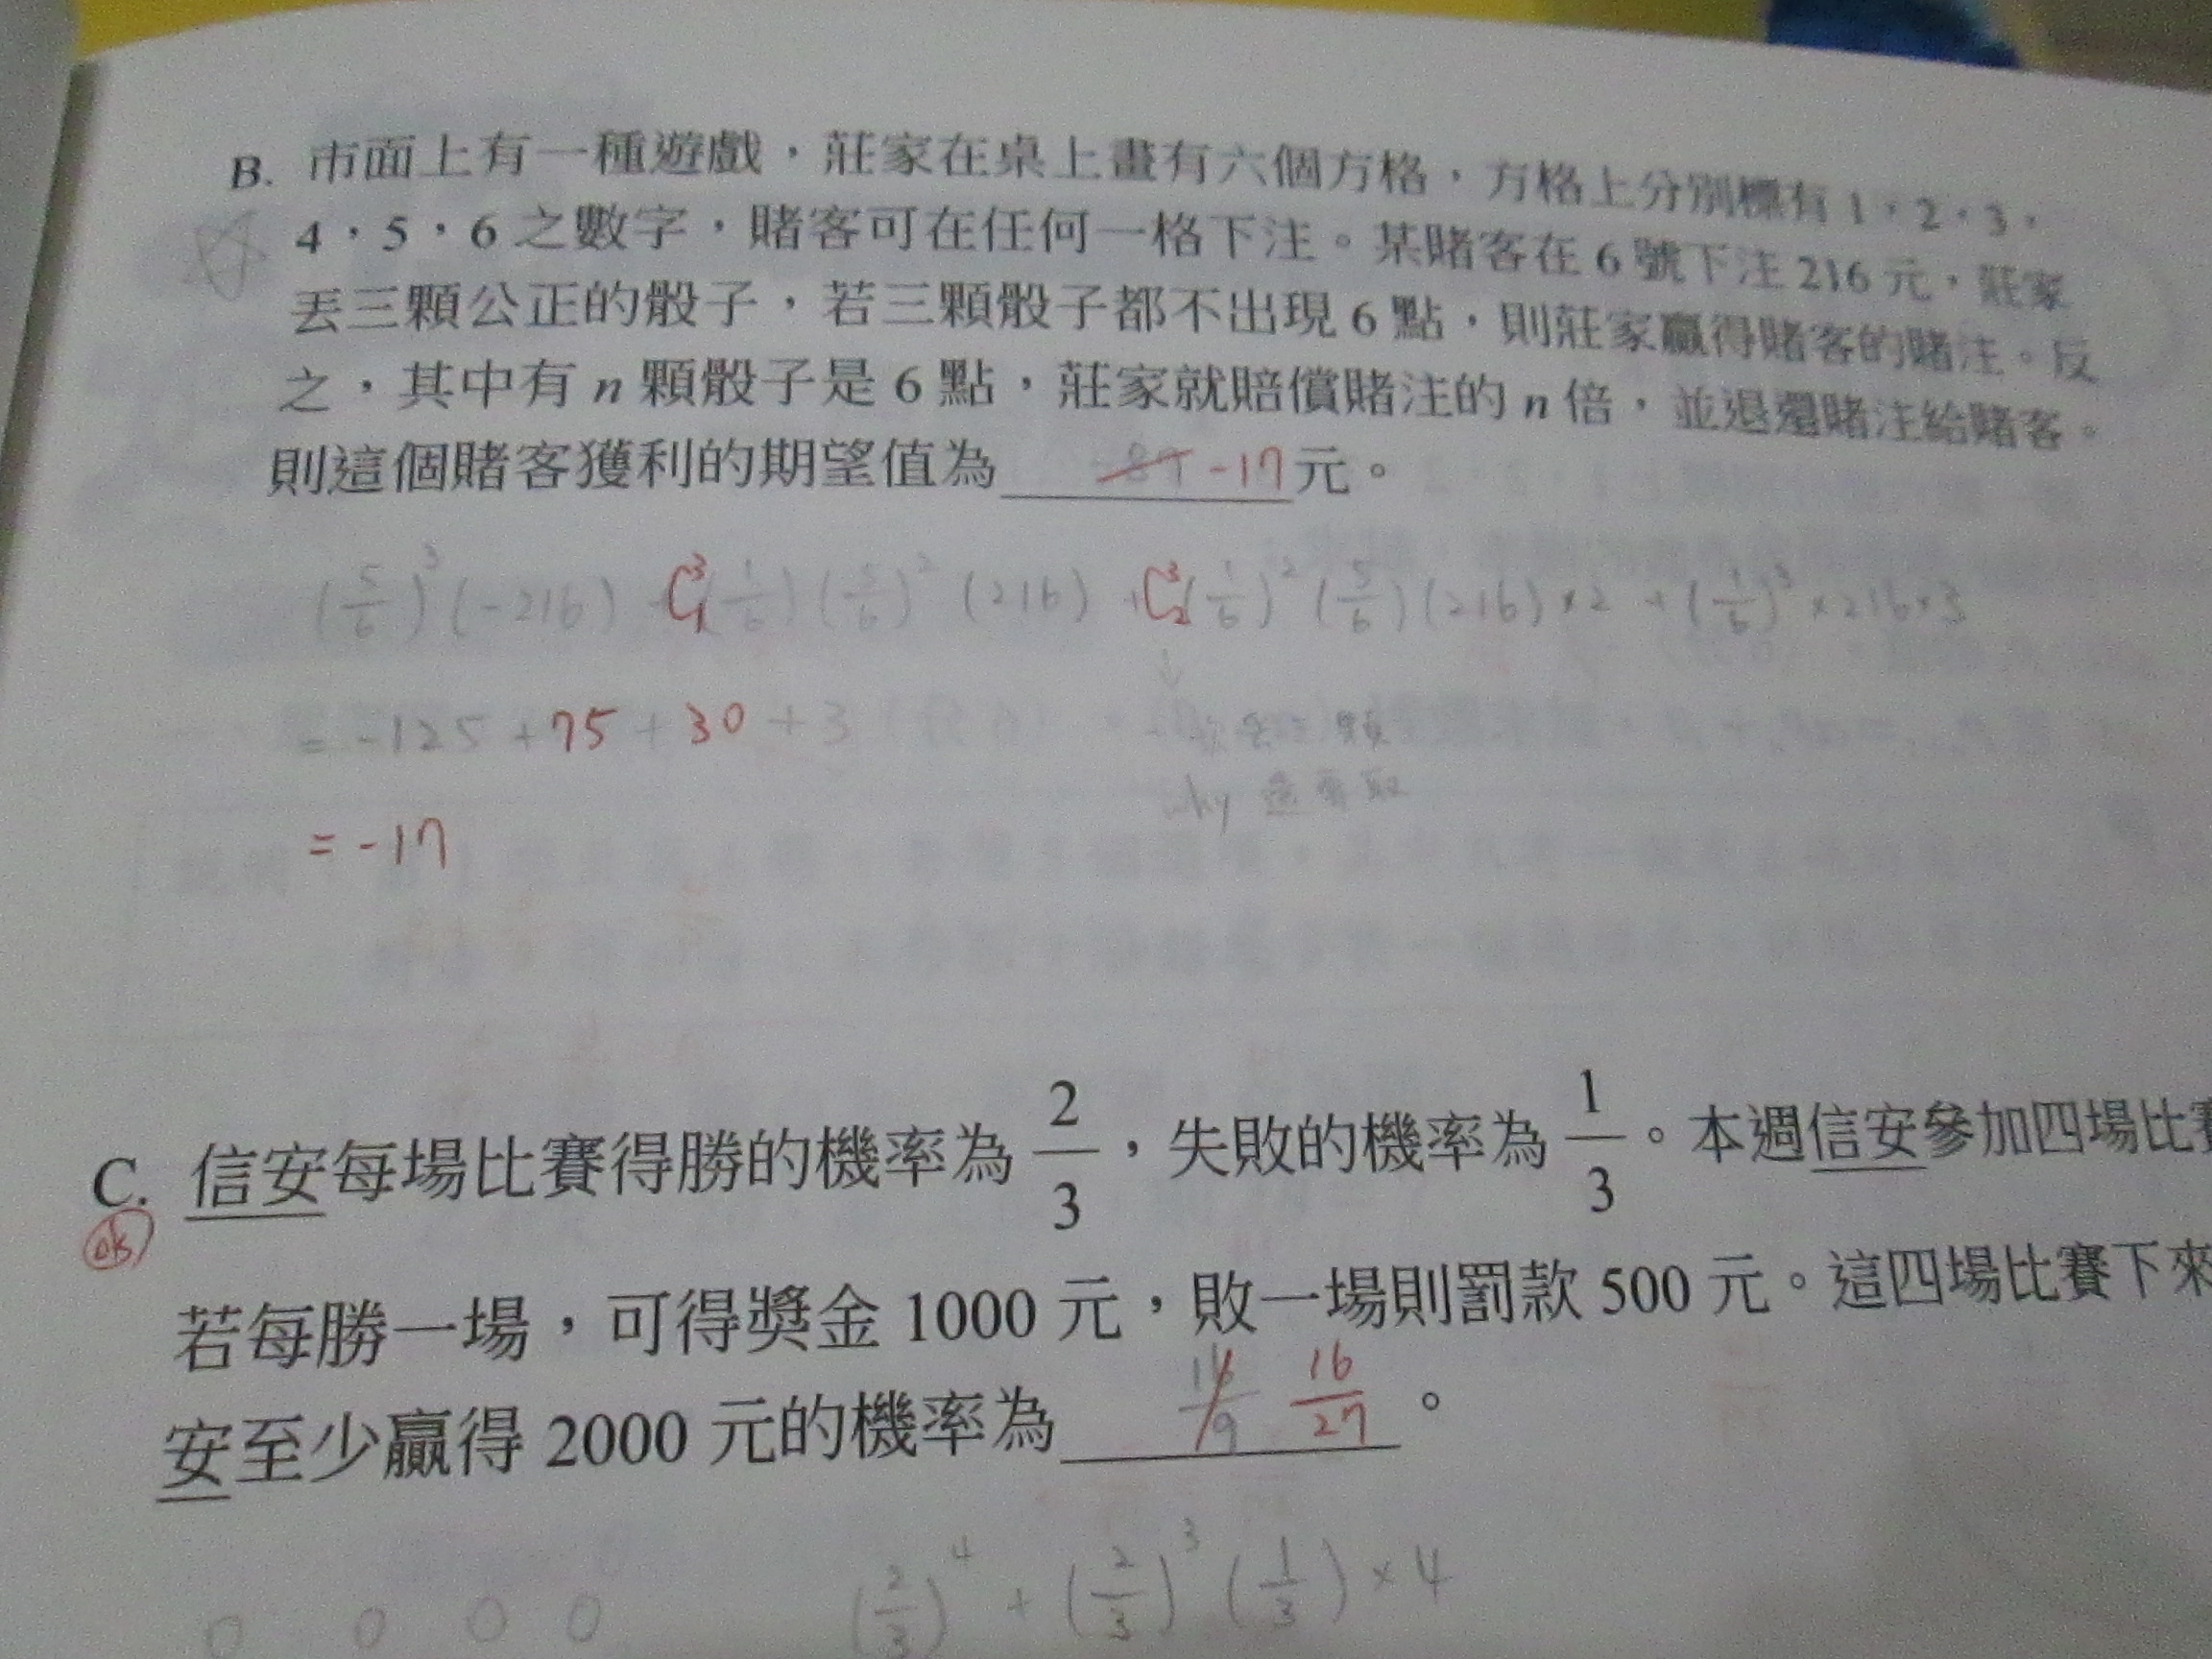 B. 市面上有一種遊戲，莊家在桌上畫有六個方格，方格上分別標有 1，2，3，
4，5，6 之數字，賭客可在任何一格下注。某賭客在 6 號下注 216 元，莊家
丟三顆公正的骰子，若三顆骰子都不出現 6 點，則莊家贏得賭客的賭注。反
之，其中有 n 顆骰子是 6 點，莊家就賠償賭注的 n 倍，並退還賭注給賭客。
則這個賭客獲利的期望值為 -17 元。
(5/6)^3 (-216) + C^3_1 (1/6) (5/6)^2 (216) + C^3_2 (1/6)^2 (5/6) (216) × 2 + (1/6)^3 × 216 × 3
= -125 + 75 + 30 + 3
why 還要取
= -17
C. 信安每場比賽得勝的機率為 2/3，失敗的機率為 1/3。本週信安參加四場比賽
ok
若每勝一場，可得獎金 1000 元，敗一場則罰款 500 元。這四場比賽下來
安至少贏得 2000 元的機率為 16/9 16/27 。
(2/3)^4 + (2/3)^3 (1/3) × 4
0 0 0 0